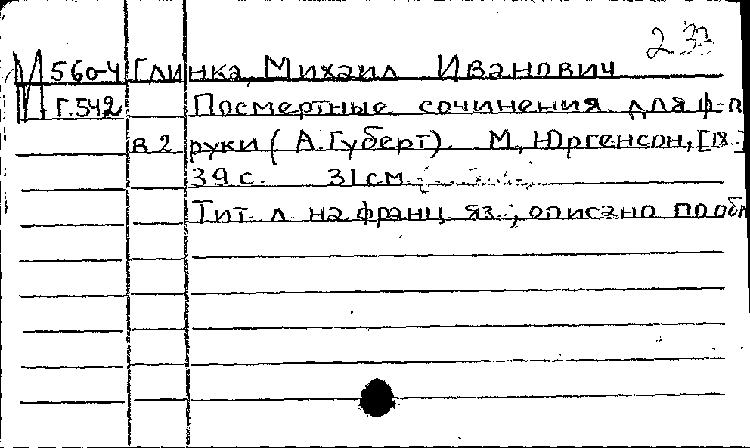 233
И 560-4 Глинка, Михаил Иванович
Г.542 Посмертные сочинения для ф-п
в 2 руки (А. Губерт). М., Юргенсон, [18.]
39 с. 31 см.
Тит. л. на франц. яз.; описано по обл